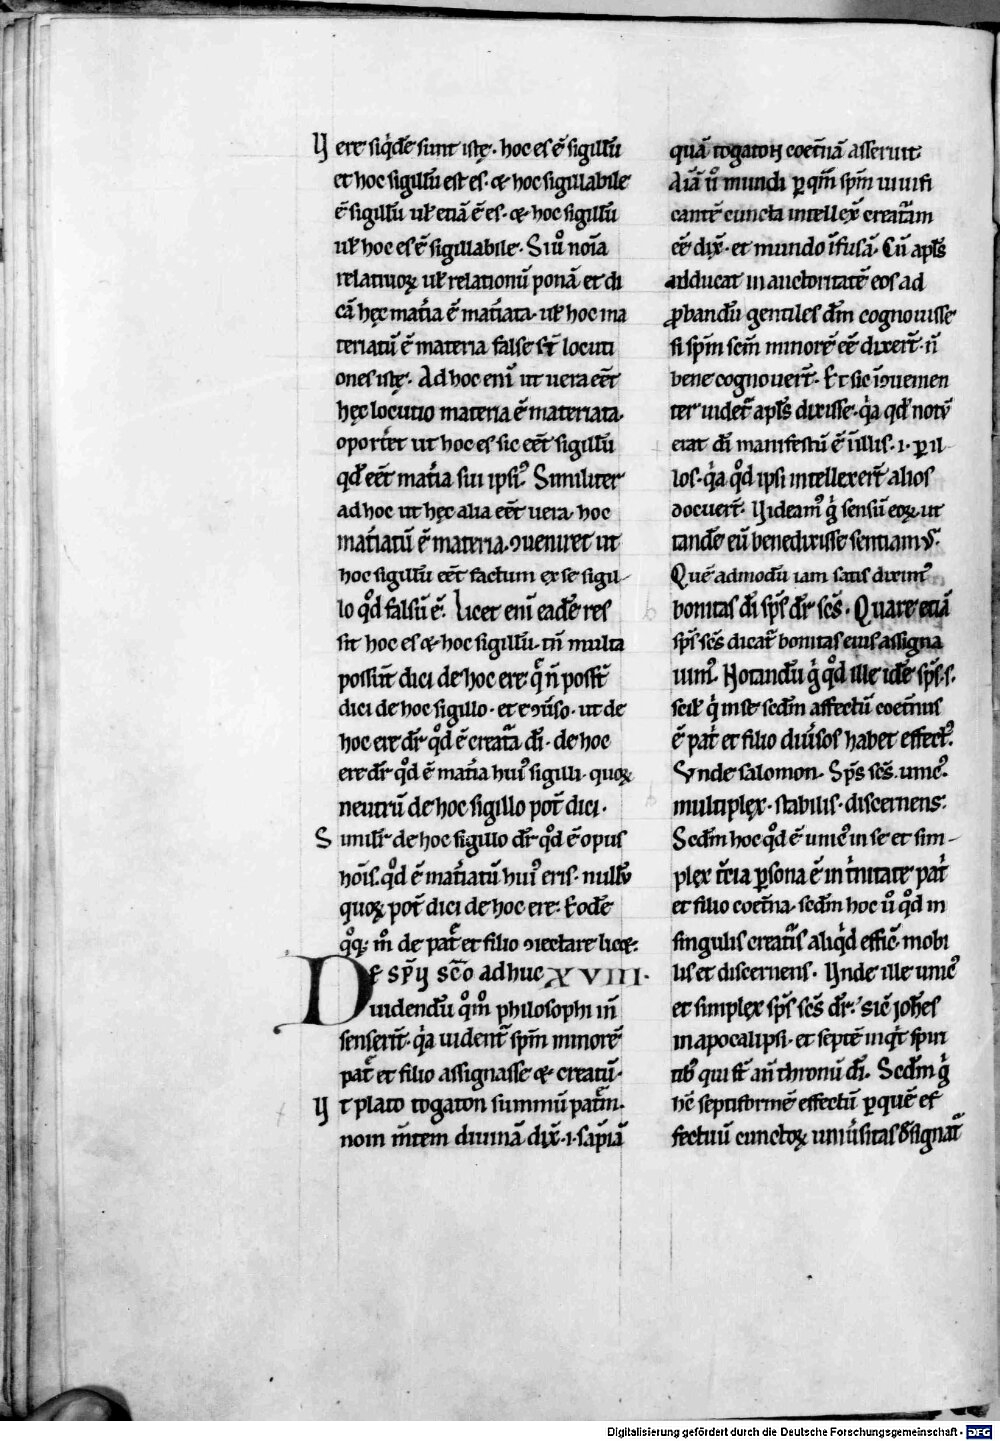 Vere siq̇dē sunt istę. hoc es ē sigillū
et hoc sigillū est es. & hoc sigillabile
ē sigillū ul̄ etiā ē es. & hoc sigillū
ul̄ hoc es ē sigillabile. Si ůo noīa
relatiuoꝝ ul̄ relationū ponā et di
cā hęc mat̍ia ē mat̍iata. ul̄ hoc ma
teriatū ē materia false st̄ locuti
ones istę. Ad hoc eni ut uera eēt
hęc locutio materia ē materiata.
oportet ut hoc es sic eēt sigillū
qd̄ eēt mat̍ia sui ipsiꝰ. Similiter
ad hoc ut hęc alia eēt uera. hoc
mat̍iatū ē materia. ꝯueniret ut
hoc sigillū eēt factum ex se sigil-
lo qͦd falsū ē. Licet eni eadē res
sit hoc es & hoc sigillū. tn̄ multa
possūt dici de hoc ere q̄ n̄ possūt
dici de hoc sigillo. et e ꝯůso. ut de
hoc ere dr̄ qͦd ē creata dī. de hoc
ere dr̄ qͦd ē mat̍ia huiꝰ sigilli. quoꝝ
neutrū de hoc sigillo pot̄ dici.
Similr̄ de hoc sigillo dr̄ qͦd ē opus
hoīs. qͦd ē mat̍iatū huiꝰ eris. nullū
quoꝝ pot̄ dici de hoc ere. Eodē
qͦq; mͦ de pat̄ et filio ꝯiectare licet.
De sp̄u sc̄o adhuc XVIII.
Uidendū qͦmͦ philosophi in̄
senserīt. q̍a uident̄ sp̄m minorē
pat̄ et filio assignasse & creatū.
Vt plato togaton summū pat̄m.
noin m̄tem diuinā dix̄.i. sap̄iā
quā togaton coet̄nā asseruit.
Aīā ů mundi ꝑ qm̄ sp̄m uiuifi
cantē cuncta intellex̄ creatam
eē dix̄. et mundo īfusā. Cū apl̄s
adducat in auctoritatē eos ad
ꝓbandū gentiles dm̄ cognouisse
si sp̄m scm̄ minorē eē dixert̄. n̄
bene cognouert̄. Et sic īꝯuenien
ter uidet̄ apl̄s dixisse. q̍a qd̄ notū
erat dī manifestū ē ī illis.i. ꝑ il-
los. q̍a qͦd ipsi intellexert̄ alios
docuert̄. Uideamꝰ g̍ sensū eoꝝ. ut
tandē eū benedixisse sentiamꝰ.
Quē admodū iam satis diximꝰ
bonitas dī sp̄s dr̄ sc̄s. Quare etiā
sp̄s sc̄s dicat̄ bonitas eius assigna
uimꝰ. Notandū g̍ qͦd ille idē sp̄s.s.
scil̄ q̍ in se scdm̄ affectū coet̄nus
ē pat̍ et filio diůsos habet effectꝰ.
Vnde salomon. Sp̄s sc̄s. unicꝰ.
multiplex. stabilis. discernens.
Scdm̄ hoc qͦd ē unicꝰ in se et sim-
plex t̄cia ꝑsona ē in t̍nitate pat̍
et filio coet̄na. scdm̄ hoc ů qͦd in
singulis creat̄is aliq̍d effic̄. mobi
lis et discernens. Unde ille unicꝰ
et simplex sp̄s sc̄s dr̄. sic̄ joh̄es
in apocalipsi. et septē inq̍t spiri
tibꝰ qui st̄ an̄ thronū dī. Scdm̄ g̍
hc̄ septiformē effectū ꝑ quē ef
fectuū cunctoꝝ uniůsitas designat̄
Digitalisierung gefördert durch die Deutsche Forschungsgemeinschaft - DFG